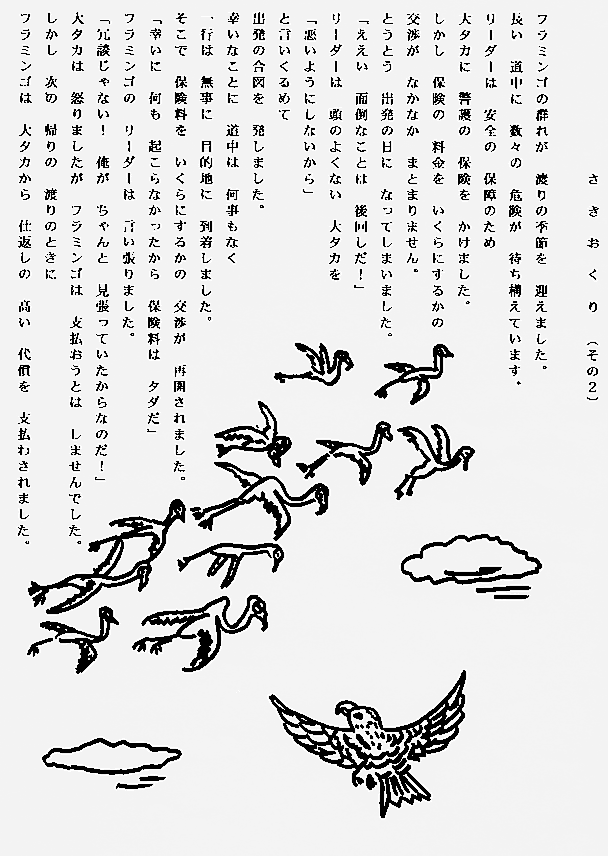 さきおくり (その2)
フラミンゴの群れが 渡りの季節を 迎えました。
長い 道中に 数々の 危険が 待ち構えています。
リーダーは 安全の 保障のため
大タカに 警護の 保険を かけました。
しかし 保険の 料金を いくらにするかの
交渉が なかなか まとまりません。
とうとう 出発の日に なってしまいました。
「ええい 面倒なことは 後回しだ！」
リーダーは 頭のよくない 大タカを
「悪いようにしないから」
と言いくるめて
出発の合図を 発しました。
幸いなことに 道中は 何事もなく
一行は 無事に 目的地に 到着しました。
そこで 保険料を いくらにするかの 交渉が 再開されました。
「幸いに 何も 起こらなかったから 保険料は タダだ」
フラミンゴの リーダーは 言い張りました。
「冗談じゃない！ 俺が ちゃんと 見張っていたからなのだ！」
大タカは 怒りましたが フラミンゴは 支払おうとは しませんでした。
しかし 次の 帰りの 渡りのときに
フラミンゴは 大タカから 仕返しの 高い 代償を 支払わされました。